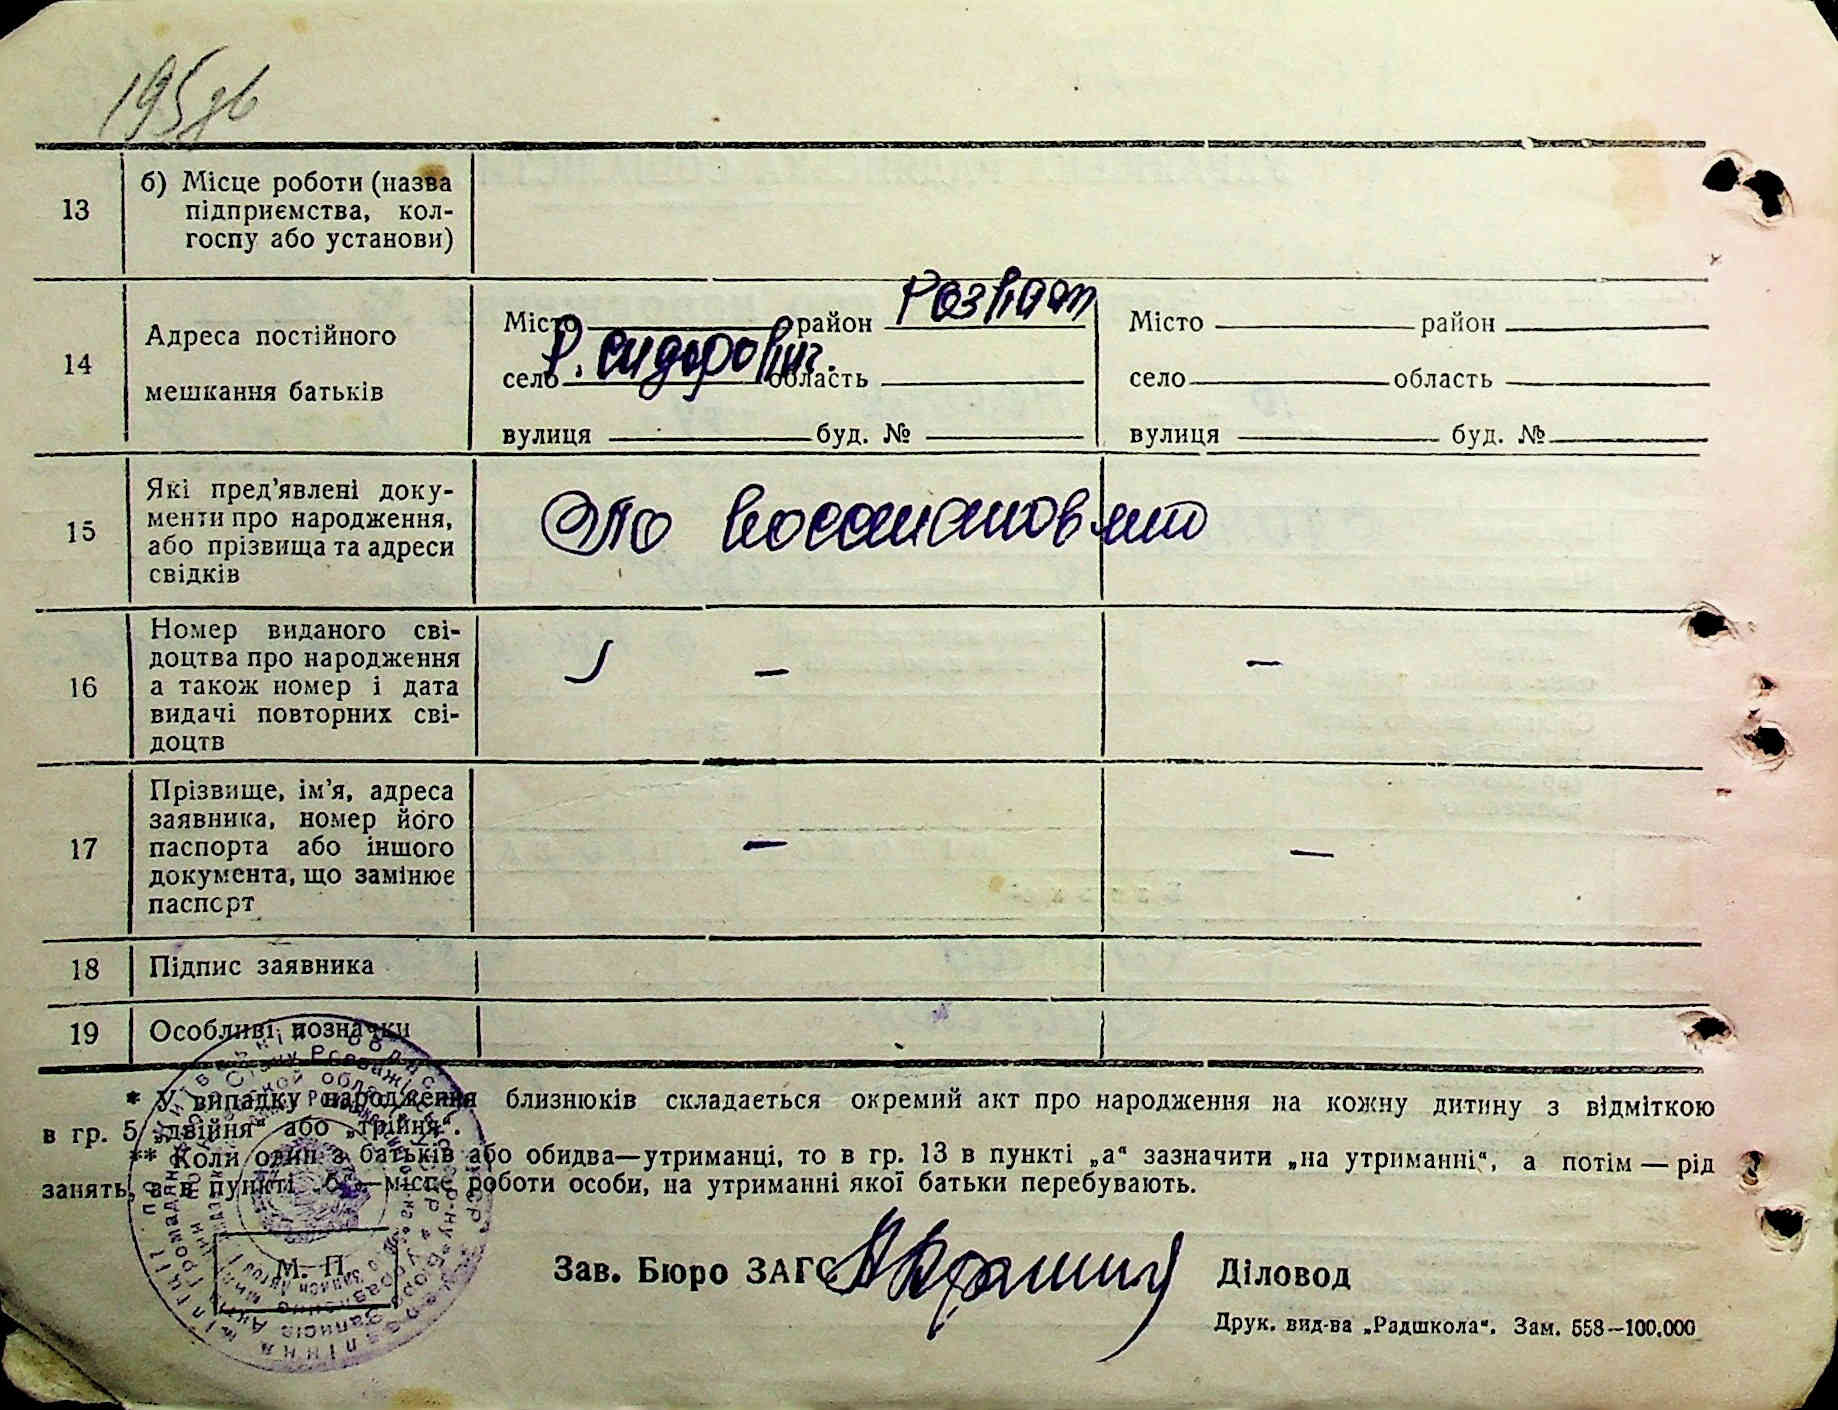 195 дв
13
б) Місце роботи (назва
підприємства, кол-
госпу або установи)
14
Адреса постійного
мешкання батьків
Місто район Розваж
село Р. Сидоровичі. область
вулиця буд. №
Місто район
село область
вулиця буд. №
15
Які пред’явлені доку-
менти про народження,
або прізвища та адреси
свідків
16
Номер виданого сві-
доцтва про народження
а також номер і дата
видачі повторних сві-
доцтв
— —
17
Прізвище, ім’я, адреса
заявника, номер його
паспорта або іншого
документа, що замінює
паспорт
— —
18
Підпис заявника
19
Особливі позначки
* У випадку народження близнюків складається окремий акт про народження на кожну дитину з відміткою
в гр. 5 „двійня“ або „трійня“.
** Коли один з батьків або обидва—утриманці, то в гр. 13 в пункті „а“ зазначити „на утриманні“, а потім — рід
занять, а в пункті „б“—місце роботи особи, на утриманні якої батьки перебувають.
М. П.
Зав. Бюро ЗАГС
Діловод
Друк. вид-ва „Радшкола“. Зам. 558—100.000